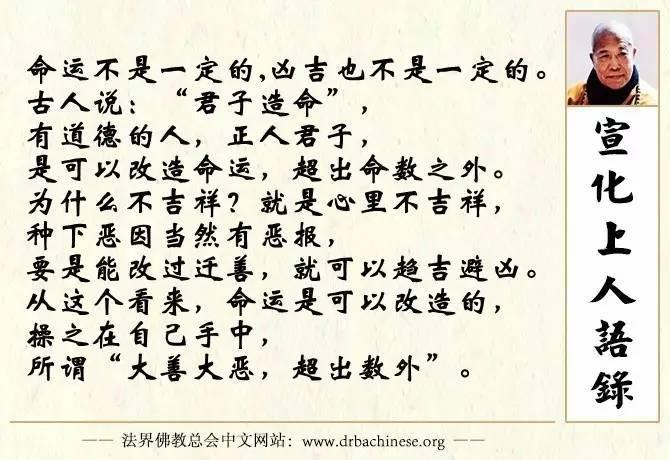 命运不是一定的,凶吉也不是一定的。
古人说：“君子造命”，
有道德的人，正人君子，
是可以改造命运，超出命数之外。
为什么不吉祥？就是心里不吉祥，
种下恶因当然有恶报，
要是能改过迁善，就可以趋吉避凶。
从这个看来，命运是可以改造的，
操之在自己手中，
所谓“大善大恶，超出数外”。
宣化上人語錄
—— 法界佛教总会中文网站：www.drbachinese.org ——